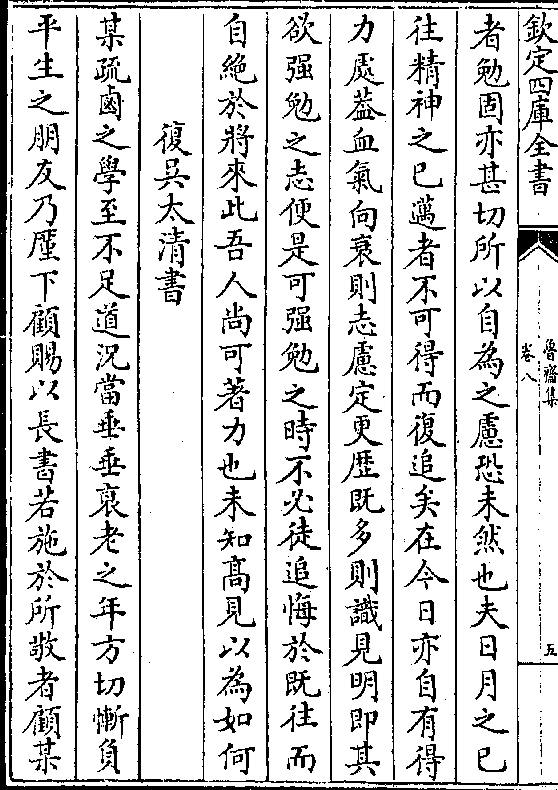 欽定四庫全書
魯齋集
卷八
五
者勉固亦甚切所以自為之慮恐未然也夫日月之已
往精神之已邁者不可得而復追矣在今日亦自有得
力處葢血氣向衰則志慮定更歴既多則識見明即其
欲强勉之志便是可强勉之時不必徒追悔於既往而
自絶於將來此吾人尚可著力也未知髙見以為如何
復吳太清書
某疏鹵之學至不足道況當垂垂衰老之年方切慚負
平生之朋友乃塵下顧賜以長書若施於所敬者顧某